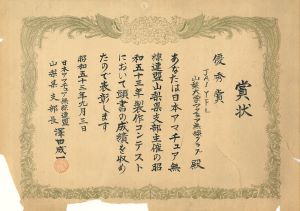 賞状
優秀賞
JA1YFL
山梨大学アマチュア無線クラブ 殿
あなたは日本アマチュア無
線連盟山梨県支部主催の昭
和五十三年製作コンテスト
において頭書の成績を収め
たので表彰します
昭和五十三年九月三日
日本アマチュア無線連盟
山梨県支部長 澤田威一